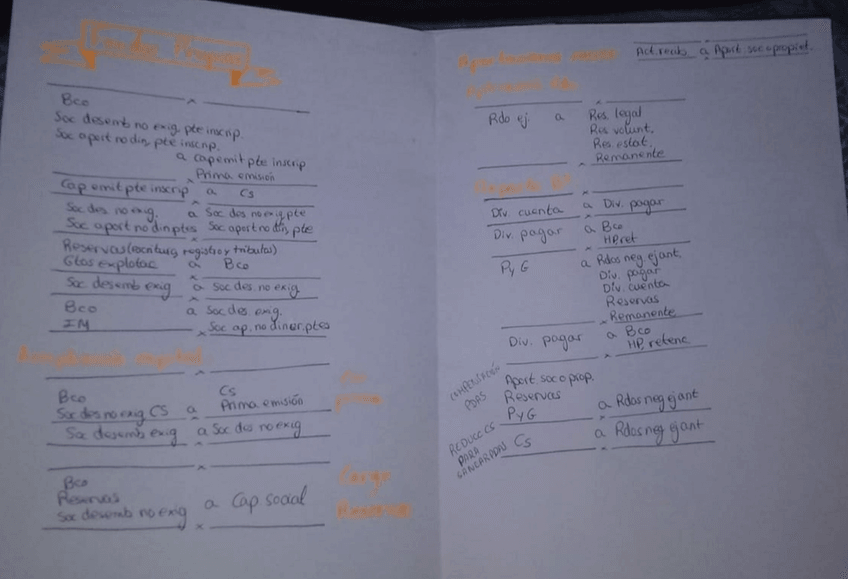 Fondos Propios
Bco
Soc desemb no exig. pte inscrip.
Soc aport no din, pte inscrip.
a cap emit pte inscrip
Prima emisión
Cap emit pte inscrip a Cs
Soc des. no exig. a Soc des no exig, pte
Soc aport no din ptes Soc aport no din, pte
Reservas (escritura, registro y tributos)
Gtos explotac a Bco
Soc desemb exig a Soc des. no exig
Bco a Soc des. exig.
IM Soc ap. no diner. ptes
Ampliación capital
Cs
Bco Prima emisión
Soc des no exig CS a
Con prima
Soc desemb exig a Soc des no exig
Bco
Reservas a Cap. social
Soc desemb no exig
Cargo
Reservas
Aportaciones socios Act. recib a Aport soc o propiet.
Rdo ej. a Res. legal
Res volunt.
Res. estat.
Remanente
Div. cuenta a Div. pagar
Div. pagar a Bco
HP ret
PyG a Rdos neg. ej ant.
Div. pagar
Div. cuenta
Reservas
Remanente
Div. pagar a Bco
HP. retenc
COMPENSACIÓN PDAS
Aport soc o prop.
Reservas
PyG a Rdos neg ej ant
REDUCC CS PARA SANEAR PDAS
Cs a Rdos neg ej ant